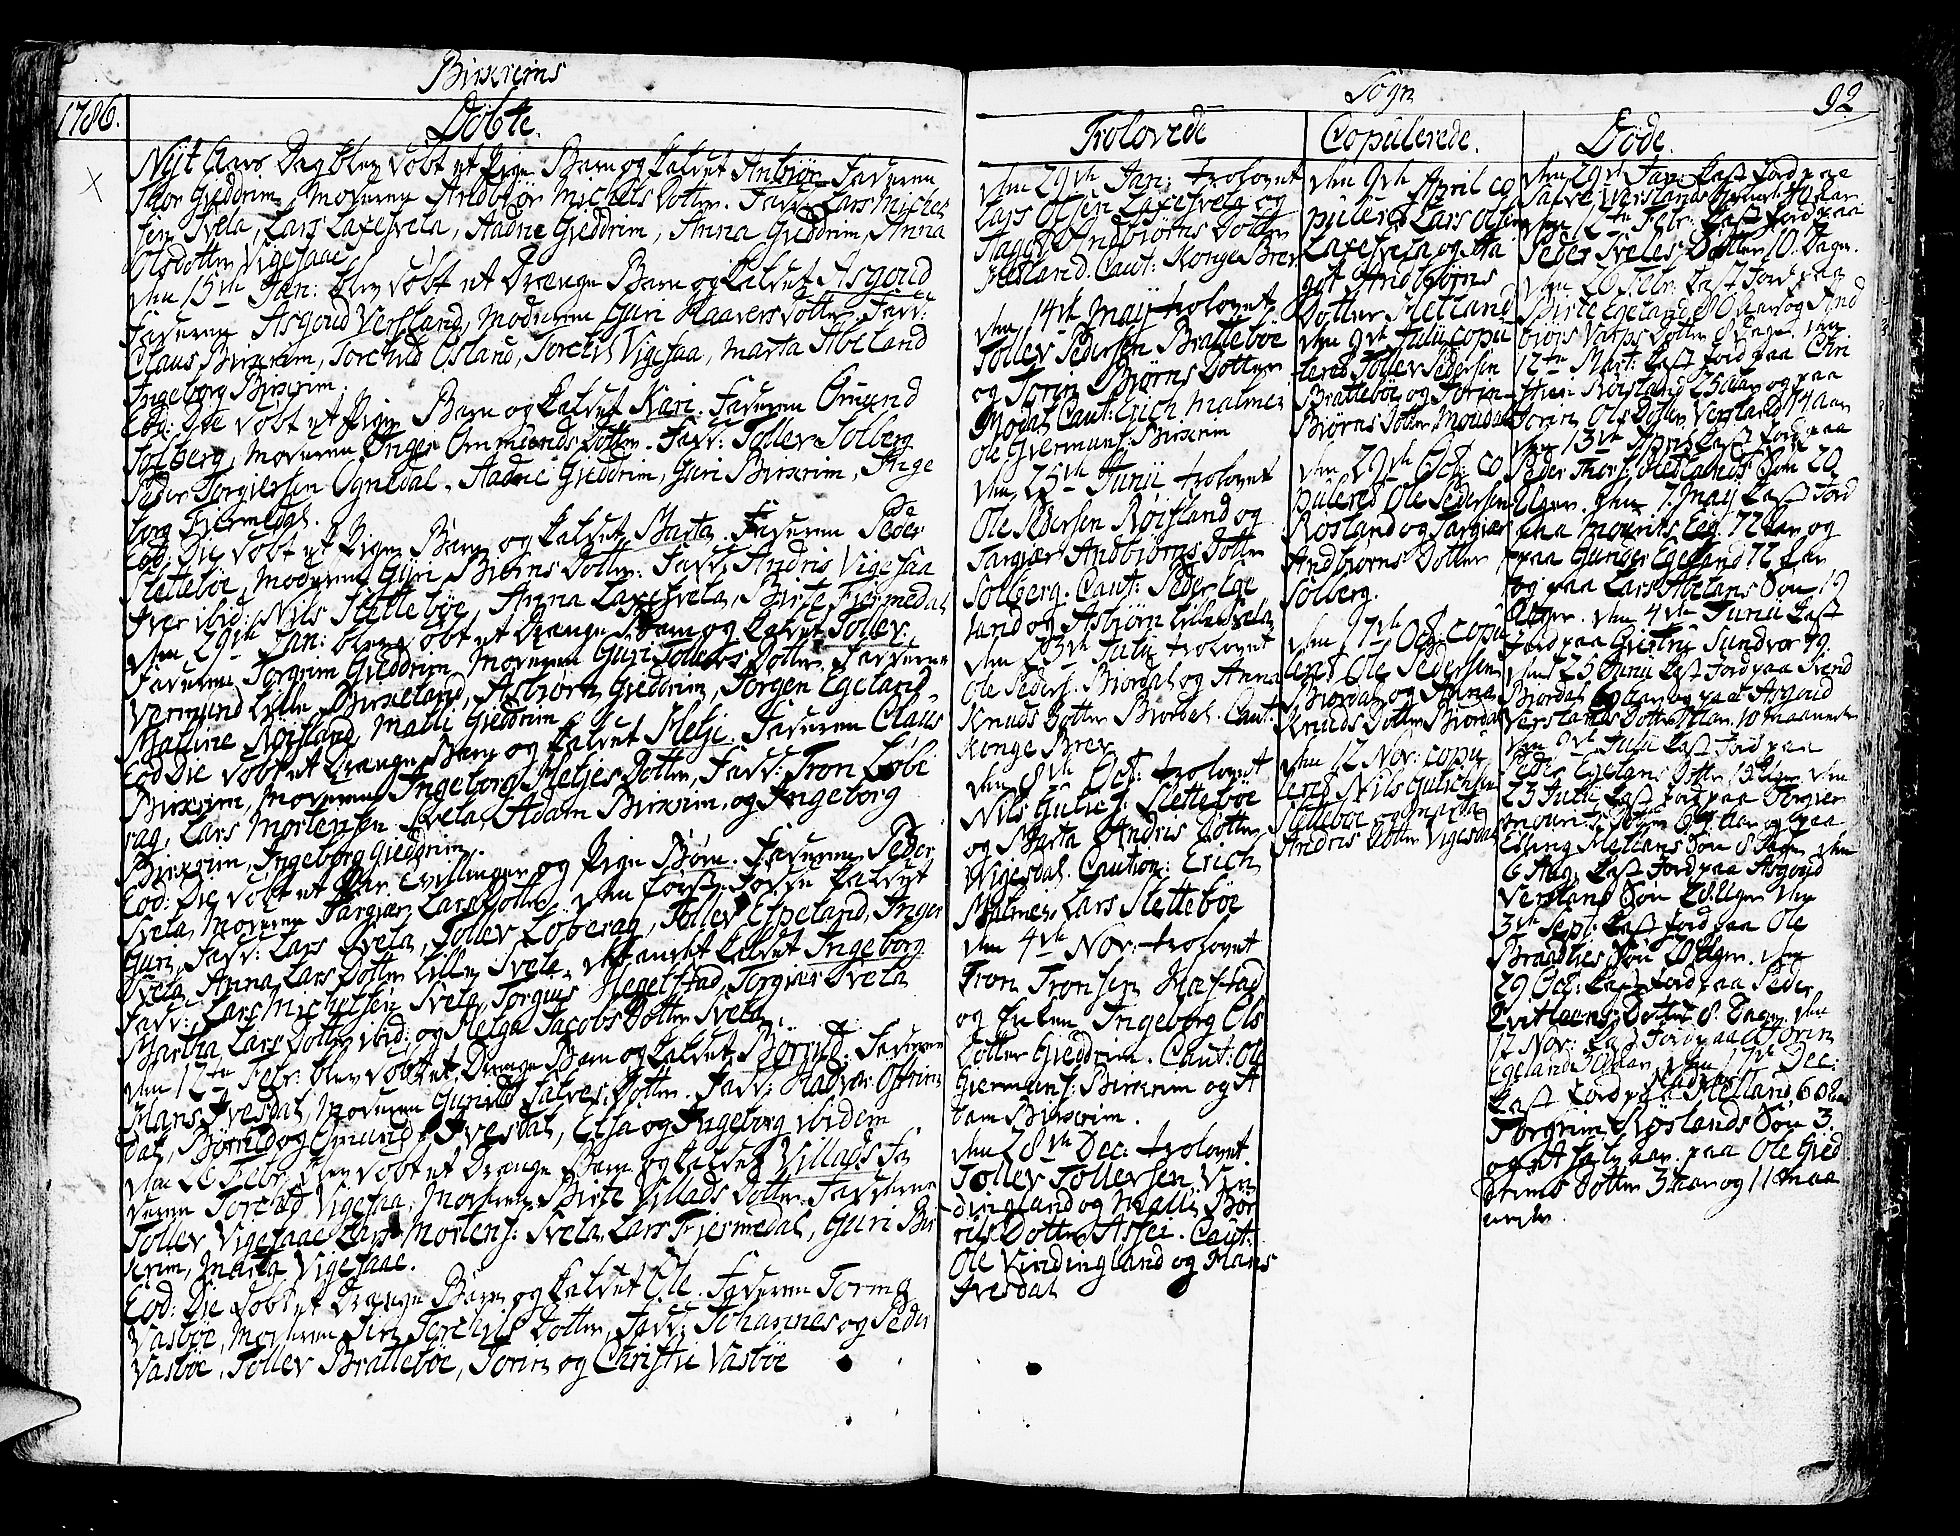 Birkreims
1786.
Döbte.
Nÿt Aars Dag blev döbt et Pige Barn og kaldet Anbiör Faderen
Thor Gieddrim, Moderen Andbiör Michels Dotter. Fadd: Lars Michel
sen Svela, Lars Laxesvela, Aadne Gieddrim, Anna Gieddrim, Anna
Olsdotter Vigesaae
den 15de Jan: blev döbt et Drænge Barn og kaldet Asgoud
Faderen Asgoud Versland, Moderen Guri Haavers Dotter. Fadd:
Claus Birkrim, Torchild Osland, Torchil Vigesaa, Marta Abeland
Ingeborg Birkrim.
Eod: Die döbt et Pige Barn og kaldet Kari. Faderen Omund
Solberg, Moderen Inger Ommunds Dotter. Fadd: Tollev Solberg
Peder Torgiersen Ognedal, Aadne Gieddrim, Guri Birkrim, Inge
borg Fiermedal.
Eod: Die döbt et Pige Barn og kaldet Marta. Faderen Peder
Sletteböe, Moderen Guri Biörns Dotter. Fadd: Andris Vigesaa
Iver ibid: Nils Sletteböe, Anna Laxesvela, Birte Fiermedal
den 29de Jan: blev döbt et Drænge Barn og kaldet Tollev.
Faderen Torgrim Gieddrim Moderen Guri Tollevs Dotter. Fadderne
Vermund Lille Birkeland, Asbiörn Gieddrim, Torgen Egeland
Mallene Röisland, Malli Gieddrim
Eod Die döbt et Drænge Barn og kaldet Hetje. Faderen Claus
Birkrim, Moderen Ingeborg Hetjes Dotter, Fadd: Tron Löbe
rag, Lars Mortensen Svela, Adam Birkrim, og Ingeborg
Birkrim, Ingeborg Gieddrim.
Eod: Die döbt et Par Tvillinger og Pige Börn. Faderen Peder
Svela, Moderen Targiær Lars Dotter. den först födde kaldet
Guri, Fadd: Lars Svela, Tollev Löberag, Tollev Espeland, Inger
Svela, Anna Lars Dotter Lille Svela. det andet kaldet Ingeborg
Fadd: Lars Michelsen Svela, Torgius Hegelstad, Torgiær Svela
Martha Lars Dotter ibid: og Helga Jacobs Dotter Svela.
den 12te Febr: blev döbt et Drænge Barn og kaldet Börrild. Faderen
Mans Ivesdal, Moderen Gunild Salves Dotter. Fadd: Hadvær Ostrim
dal, Börrild og Omund Ivesdal, Elsa og Ingeborg ibidem
den 26 Febr: blev döbt et Drænge Barn og kaldet Villads Fa
deren Torchild Vigesaa, Moderen Birte Villads Dotter. Fadderne
Tollev Vigesaae Lars Mortens: Svela, Lars Fiermedal, Guri Bir
krim, Marta Vigesaae.
Eod: Die döbt et Drænge Barn og kaldet Ole. Faderen Tormo
Vasböe, Moderen Siri Torchils Dotter, Fadd: Johannes og Peder
Vasböe, Tollev Bratteböe, Torin og Christi Vasböe
Sogn
92
Trolovede
den 29de Jan: trolovet
Lars Olsen Laxesvela og
Aagot Andbiörns Dotter
Hetland. Caut: Konge Brev
den 14de May trolovet
Tollev Pedersen Bratteböe
og Torin Biörns Dotter
Modal Caut: Erich Malmen
Ole Giermuns: Birkrim
den 25de Junii trolovet
Ole Pedersen Röisland og
Targiær Andbiörns Dotter
Solberg. Caut: Peder Ege
land og Asbiörn Lille Svela
den 23de Julii trolovet
Ole Peders: Biordal og Anna
Knuds Dotter Biordal. Caut:
Konge Brev
den 8de Oct: trolovet
Nils Gulichs: Sletteböe
og Marta Andris Dotter
Vigesdal. Caution: Erich
Malmen Lars Sletteböe
den 4de Nov: trolovet
Tron Tronsen Hæstad
og Enken Ingeborg Ols
Dotter Gieddrim. Caut: Ole
Giermuns: Birkrim og A
dam Birkrim.
den 28de Dec: trolovet
Tollev Tollevsen Vin
dingland og Malli Bör
rils Dotter Assei. Caut:
Ole Vindingland og Mans
Ivesdal
Copulerede.
den 9de April co
pulert Lars Olsen
Laxesvela og Aa
got Andbiörns
Dotter Hetland
den 9de Julii copu
leret Tollev Pedersen
Bratteböe og Torin
Biörns Dotter Moudal
den 29de Oct: co
puleret Ole Pedersen
Rosland og Targiær
Andbiörns Dotter
Solberg.
den 17de Oct: copu
leret Ole Pedersen
Biordal og Anna
Knuds Dotter Biordal
den 12 Nov: copu
leret Nils Gulichsen
Sletteböe og Marta
Andris Dotter Vigesdal
Döde.
den 29de Jan: kast Jord paa
Salve Verslands
den 12te Febr: kast Jord paa
Peder Sveles Dotter 10. Dage.
den 26 Febr: kast Jord paa
Birte Egeland 80 Aar og And
biörs Varps Dotter 8 Dage. den
12te Mart: kast Jord paa Chri
sten Röisland 25 Aar og paa
Torin Ols Dotter Versland 14 Aar
den 13de April kast Jord paa
Peder Thors: Hedlands Sön 20
Uger. den 7. May kast Jord
paa Mourits Ege 72 Aar og
paa Gunder Egeland 72 Aar
og paa Lars Abelans Sön 19
Uger. den 4de Junii kast
Jord paa Sundvor 79.
den 25 Junii kast Jord paa Svend
Biordal 60 Aar og paa Asgoud
Verslands Dotter 10 Maaneder
den 9de Julii kast Jord paa
Peder Egelans Dotter 13 Uger. den
23 Julii kast Jord paa Torgier
Mourits: 69 Aar og paa
Elling Mælans Sön 8 Dage. den
6 Aug: kast Jord paa Asgoud
Versland Sön 20 Uger. den
3de Sept: kast Jord paa Ole
Braadlies Sön 20 Uger. den
29 Oct: kast Jord paa Peder
Dotter 8. Dage. den
12 Nov: kast Jord paa Torin
Egeland 30 Aar. den 17de Dec:
kast Jord paa Hetland 60 Aar
Torgrim Röslands Sön 3.
og et halv Aar. paa Ole Gied
drims Dotter 3. Aar og 11 Maa
neder.